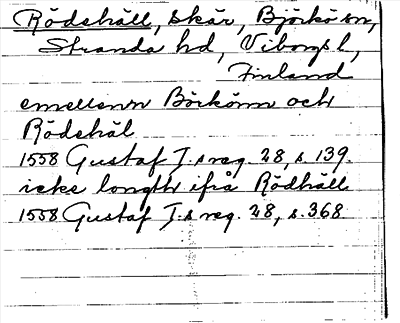 Rödshäll, skär, Björkö sn,
Stranda hd, Viborgs l,
Finland
emellenn Börkönn och
Rödshäl
1558 Gustaf I.s reg. 28, s. 139.
icke longth ifrå Rödhäll
1558 Gustaf I.s reg. 28, s. 368